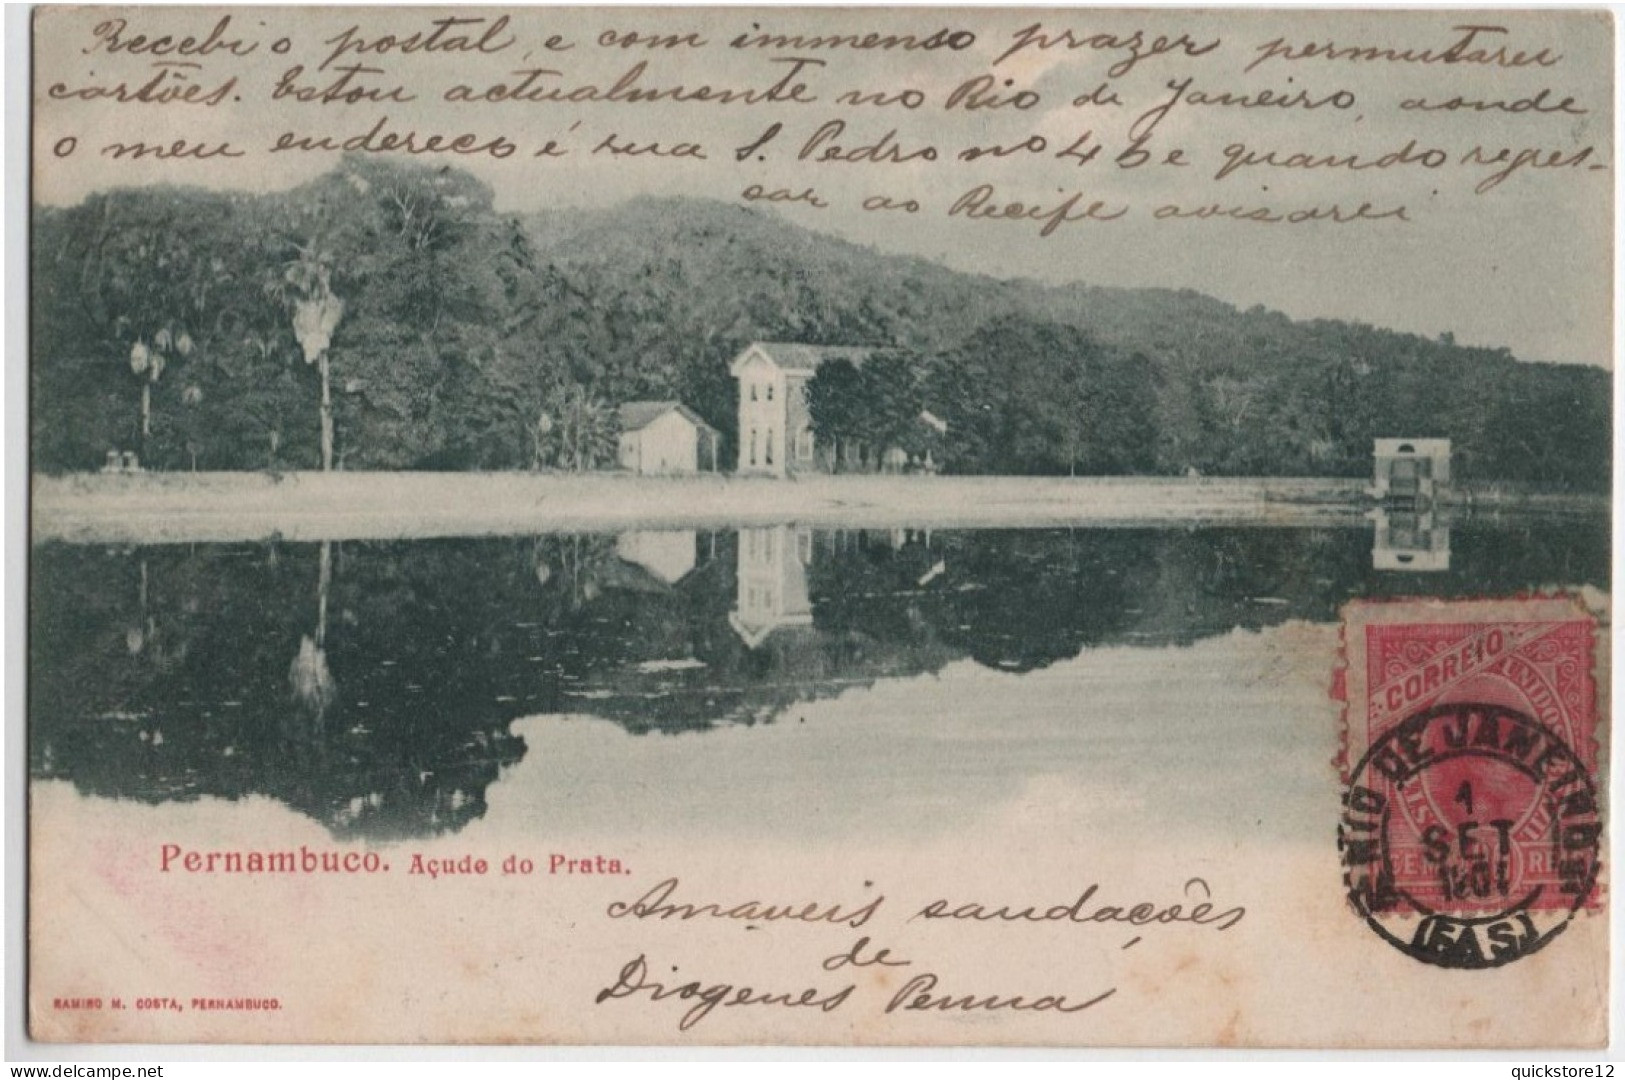 Recebi o postal, e com immenso prazer permutarei
cartões. Estou actualmente no Rio de Janeiro, aonde
o meu endereço é rua S. Pedro nº 46 e quando regres-
sar ao Recife avisarei
CORREIO
UNIDOS
REI
RIO DE JANEIRO
1
SET
(5ª S.)
Pernambuco. Açude do Prata.
Amaveis saudações
de
Diogenes Penna
RAMIRO M. COSTA, PERNAMBUCO.
quickstore12